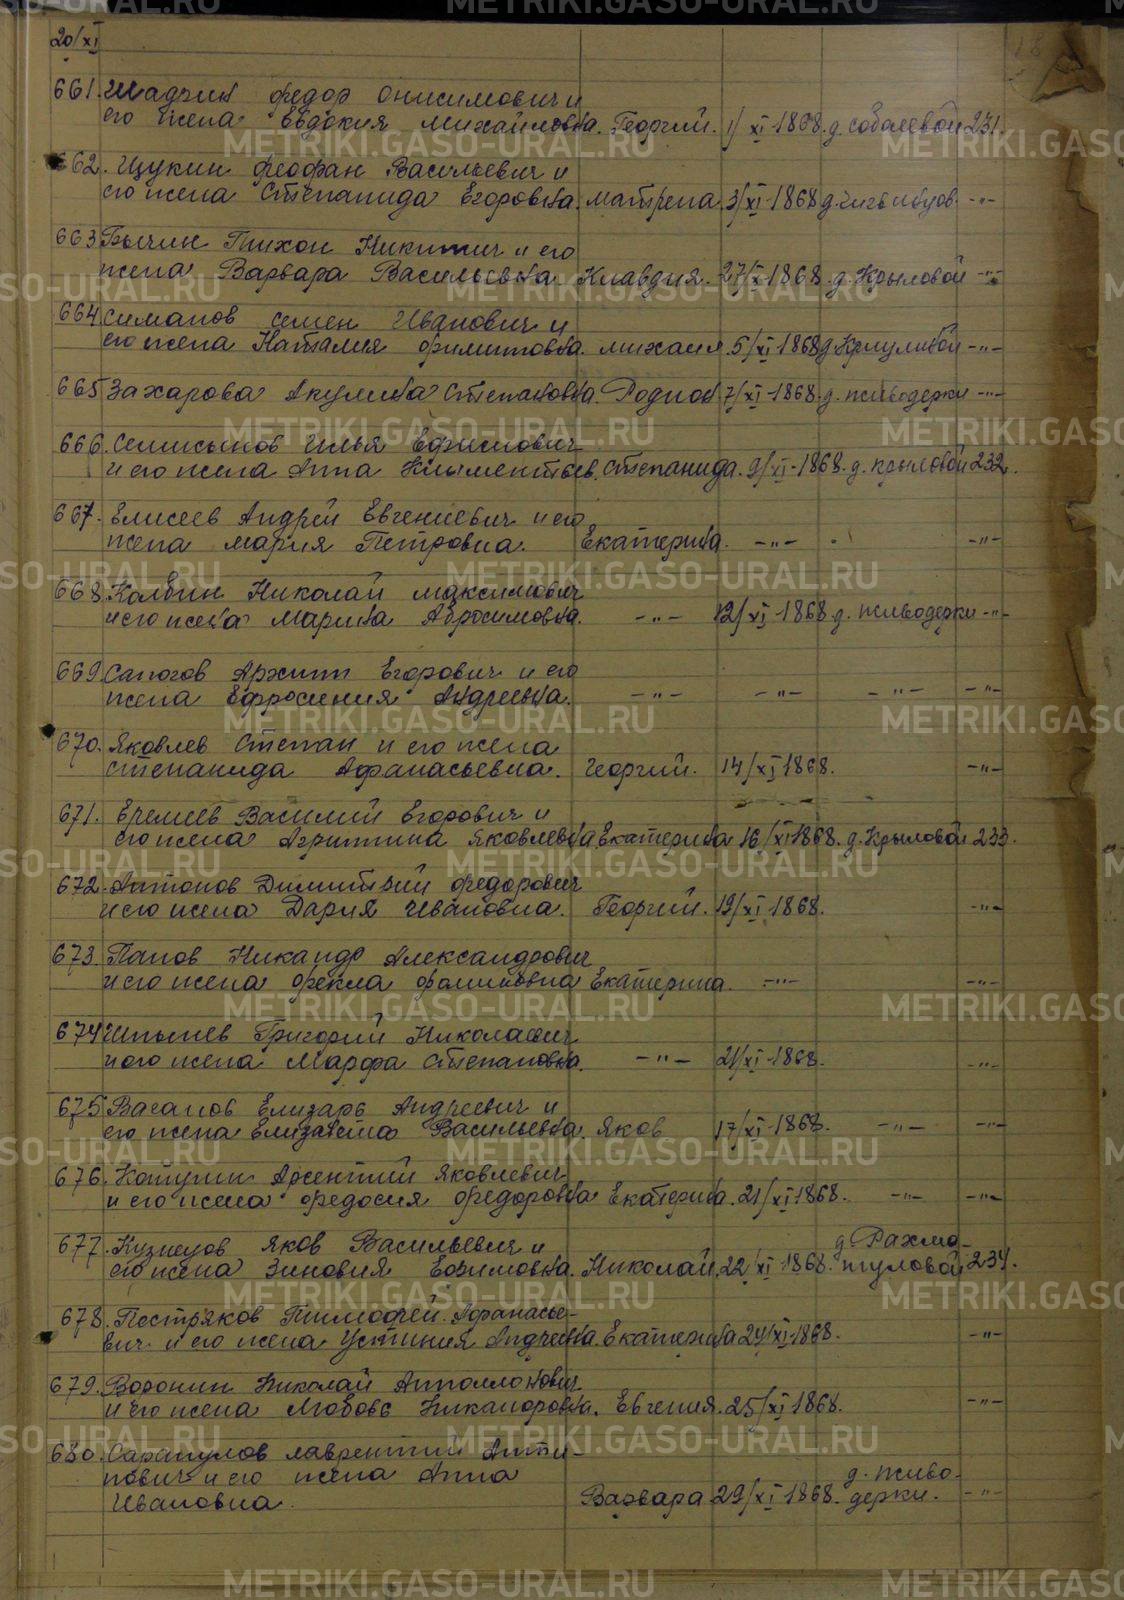 20/XI
661. Шадрин Федор Онисимович и
его жена Евдокия Михайловна. Георгий. 1/XI-1868. д. Соболевой 231.
662. Щукин Феофан Васильевич и
его жена Степанида Егоровна. Матрена. 3/XI-1868 д. -"-
663. Бычин Тихон Никитич и его
жена Варвара Васильевна Клавдия. 27/X-1868. д. Крыловой -"-
664. Симанов Семен Иванович и
его жена Наталия Филиповна. Михаил. 5/XI-1868 д. Криулиной -"-
665. Захарова Акулина Степановна. Родион 7/XI-1868. д. Живодерки -"-
666. Сенисынов Илья Ефимович
и его жена Анна Климентьев. Степанида. 9/XI-1868. д. Крыловой 232.
667. Елисеев Андрей Евгениевич и его
жена Мария Петровна. Екатерина. -"- -"-
668. Колбин Николай Максимович
и его жена Марина Абросимовна. -"- 12/XI-1868. д. Живодерки -"-
669. Сапогов Архип Егорович и его
жена Ефросиния Андреевна. -"- -"- -"- -"-
670. Яковлев Степан и его жена
Степанида Афанасьевна. Георгий. 14/XI-1868. -"-
671. Еремеев Василий Егорович и
его жена Агриппина Яковлевна. Екатерина 16/XI-1868. д. Крыловой 233.
672. Антонов Димитрий Федорович
и его жена Дария Ивановна. Георгий. 19/XI-1868. -"-
673. Попов Никандр Александрович
и его жена Фекла Фоминовна Екатерина. -"- -"-
674. Григорий Николаевич
и его жена Марфа Степановна. -"- 21/XI-1868. -"-
675. Васанов Елизар Андреевич и
его жена Елизавета Васильевна. Яков 17/XI-1868. -"- -"-
676. Катугин Арсентий Яковлевич
и его жена Федосия Федоровна Екатерина. 21/XI-1868. -"- -"-
677. Кузнецов Яков Васильевич и д. Рахма-
его жена Зиновия Ефимовна. Николай. 22/XI-1868. туловой 234.
678. Пестряков Тимофей Афанасье-
вич и его жена Устиния Андреевна. Екатерина 24/XI-1868. -"-
679. Воронин Николай Апполонович
и его жена Любовь Никаноровна. Евгения. 25/XI-1868. -"-
680. Сарапулов Лаврентий Анти-
пович и его жена Анна д. Живо-
Ивановна. Варвара 29/XI-1868. дерки. -"-